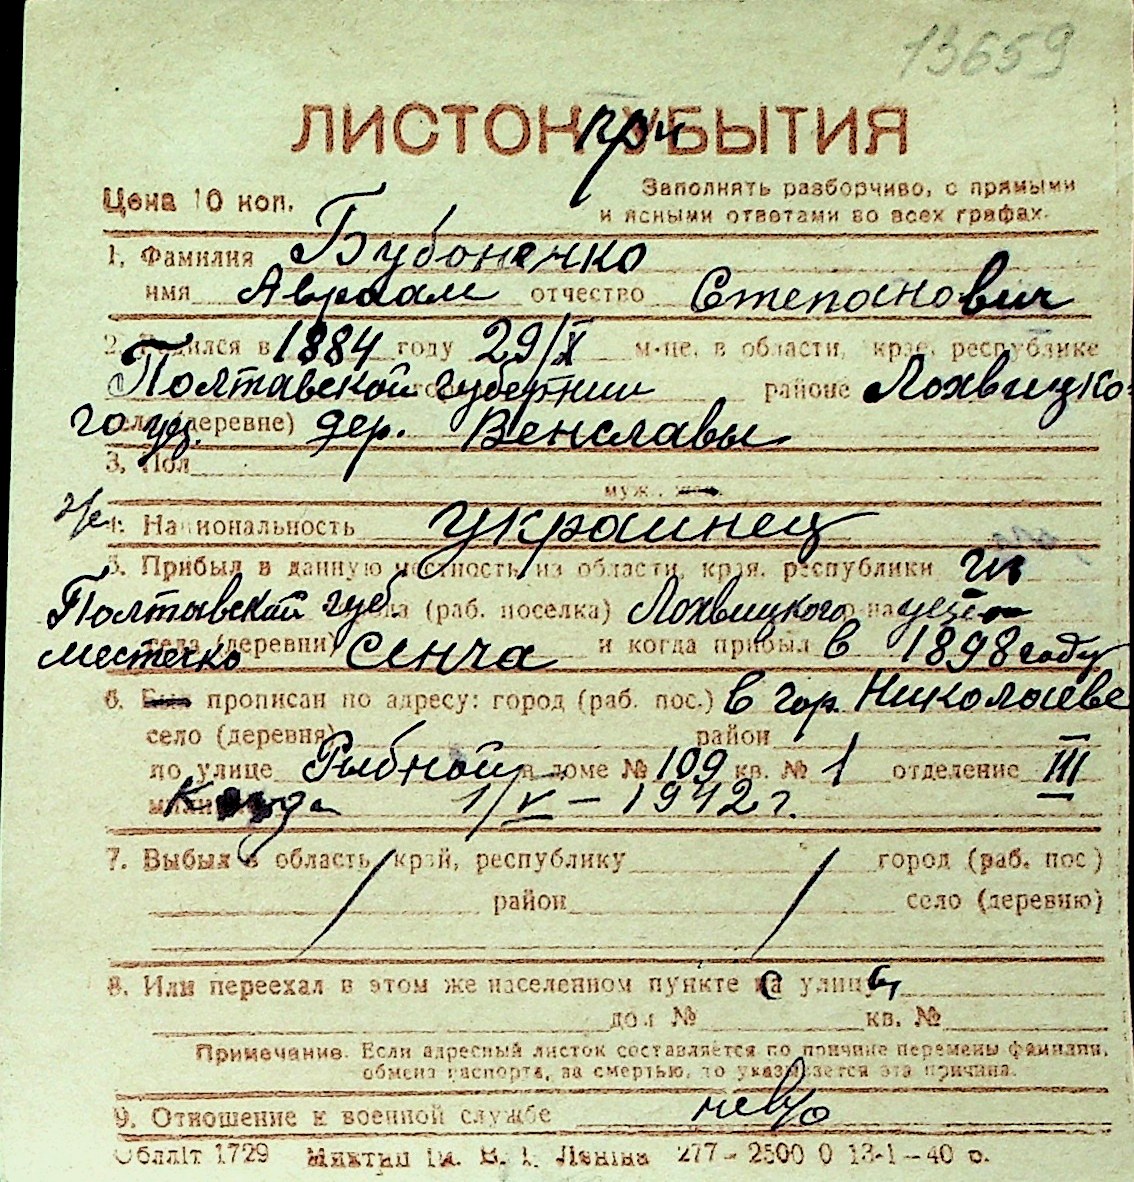 13659
ЛИСТОК при УБЫТИЯ
Цена 10 коп.
Заполнять разборчиво, с прямыми
и ясными ответами во всех графах.
1. Фамилия Бубоненко
имя Авраам отчество Степанович
2. Родился в 1884 году 29/X м-це, в области, крае, республике
Полтавской губернии районе Лохвицко-
го уц. села (деревне) дер. Венславы
3. Пол
муж., жен.
4. Национальность украинец
5. Прибыл в данную местность из области, края, республики из
Полтавской губ. (раб. поселка) Лохвицкого
местечко села (деревни) Сенча и когда прибыл в 1898 году
6. Был прописан по адресу: город (раб. пос.) в гор. Николаеве
село (деревня) район
по улице Рыбной в доме № 109 кв. № 1 отделение III
милиции Когда 1/V – 1942 г.
7. Выбыл в область, край, республику город (раб. пос.)
район село (деревню)
8. Или переехал в этом же населенном пункте на улицу
дом № кв. №
Примечание. Если адресный листок составляется по причине перемены фамилии,
обмена паспорта, за смертью, то указывается эта причина.
9. Отношение к военной службе нев/о
Облліт 1729 Миктип ім. В. І. Леніна 277 – 2500 0 13-1 – 40 р.